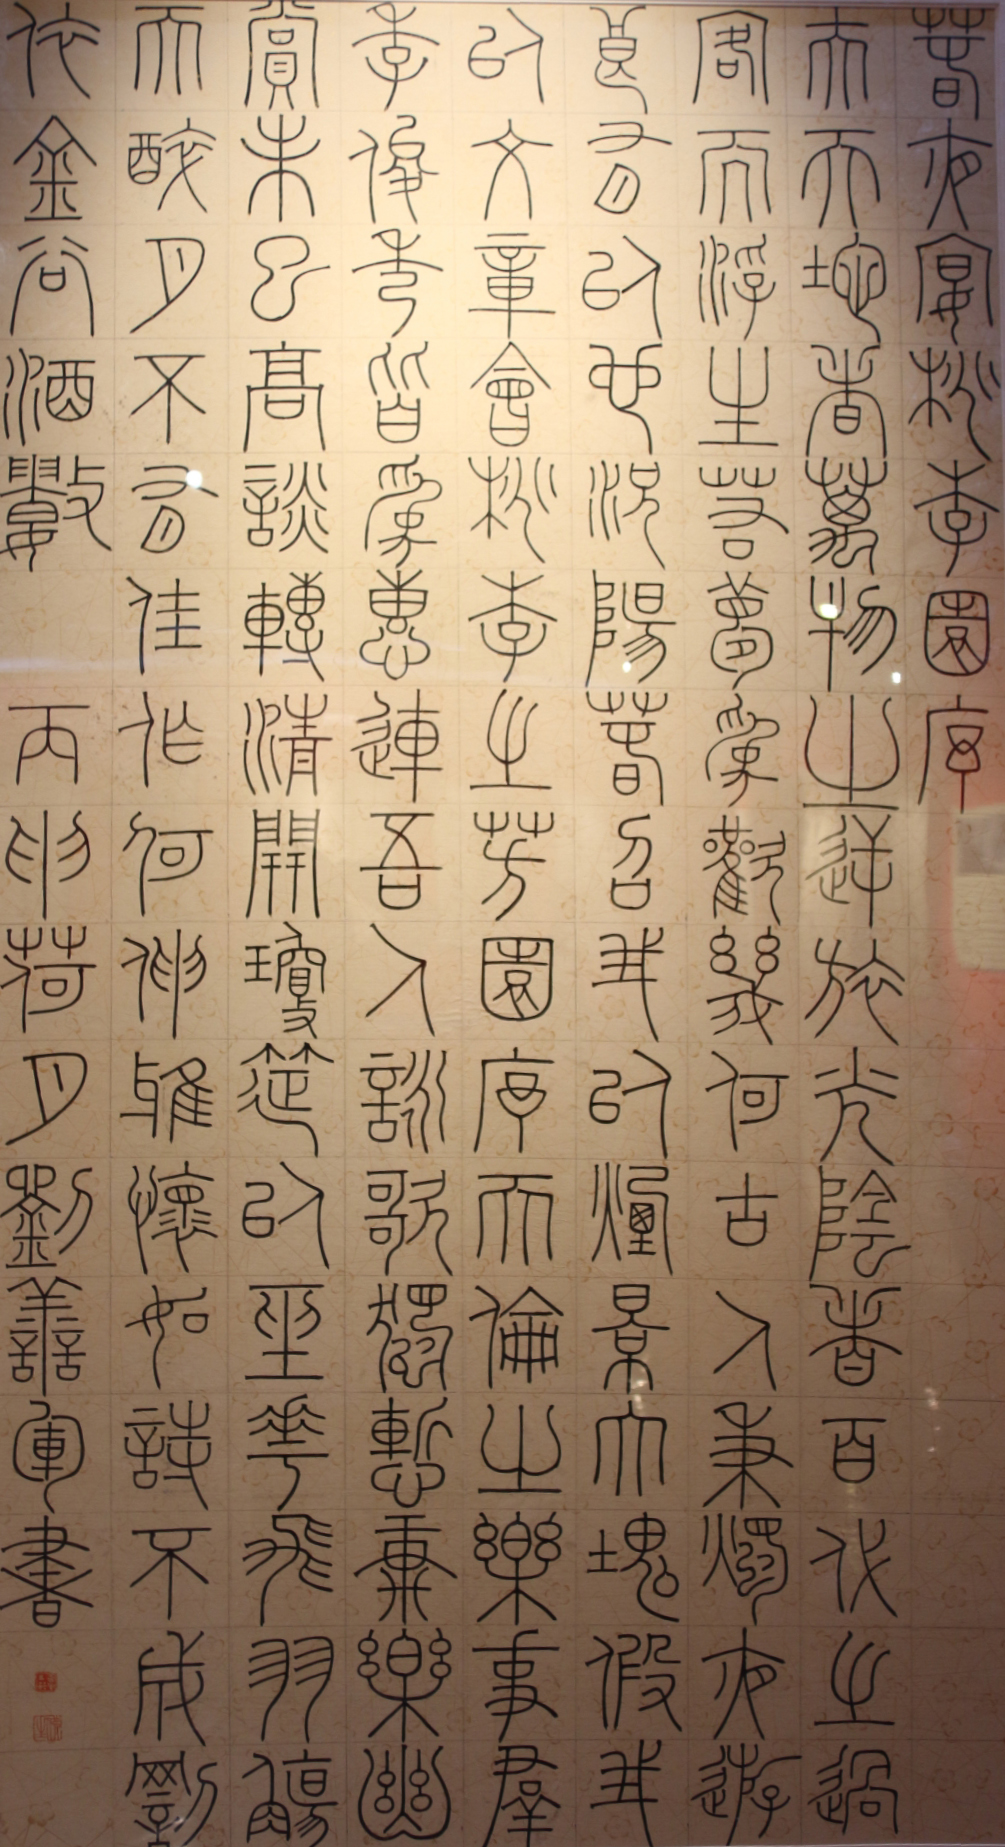 春夜宴桃李園序
夫天地者萬物之逆旅光陰者百代之過
客而浮生若夢爲歡幾何古人秉燭夜遊
良有以也況陽春召我以煙景大塊假我
以文章會桃李之芳園序天倫之樂事羣
季俊秀皆爲惠連吾人詠歌獨慙康樂幽
賞未已高談轉清開瓊筵以坐花飛羽觴
而醉月不有佳作何伸雅懷如詩不成罰
依金谷酒數 丙申荷月劉善軍書